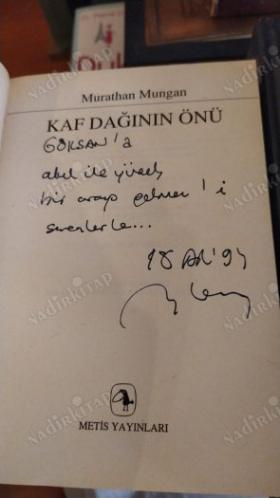 Murathan Mungan
KAF DAĞININ ÖNÜ
GÖKSAN'a
akıl ile yürek
bir araya gelmez'i
sevenlerle...
18 Ara '94
METİS YAYINLARI
NADİRKİTAP